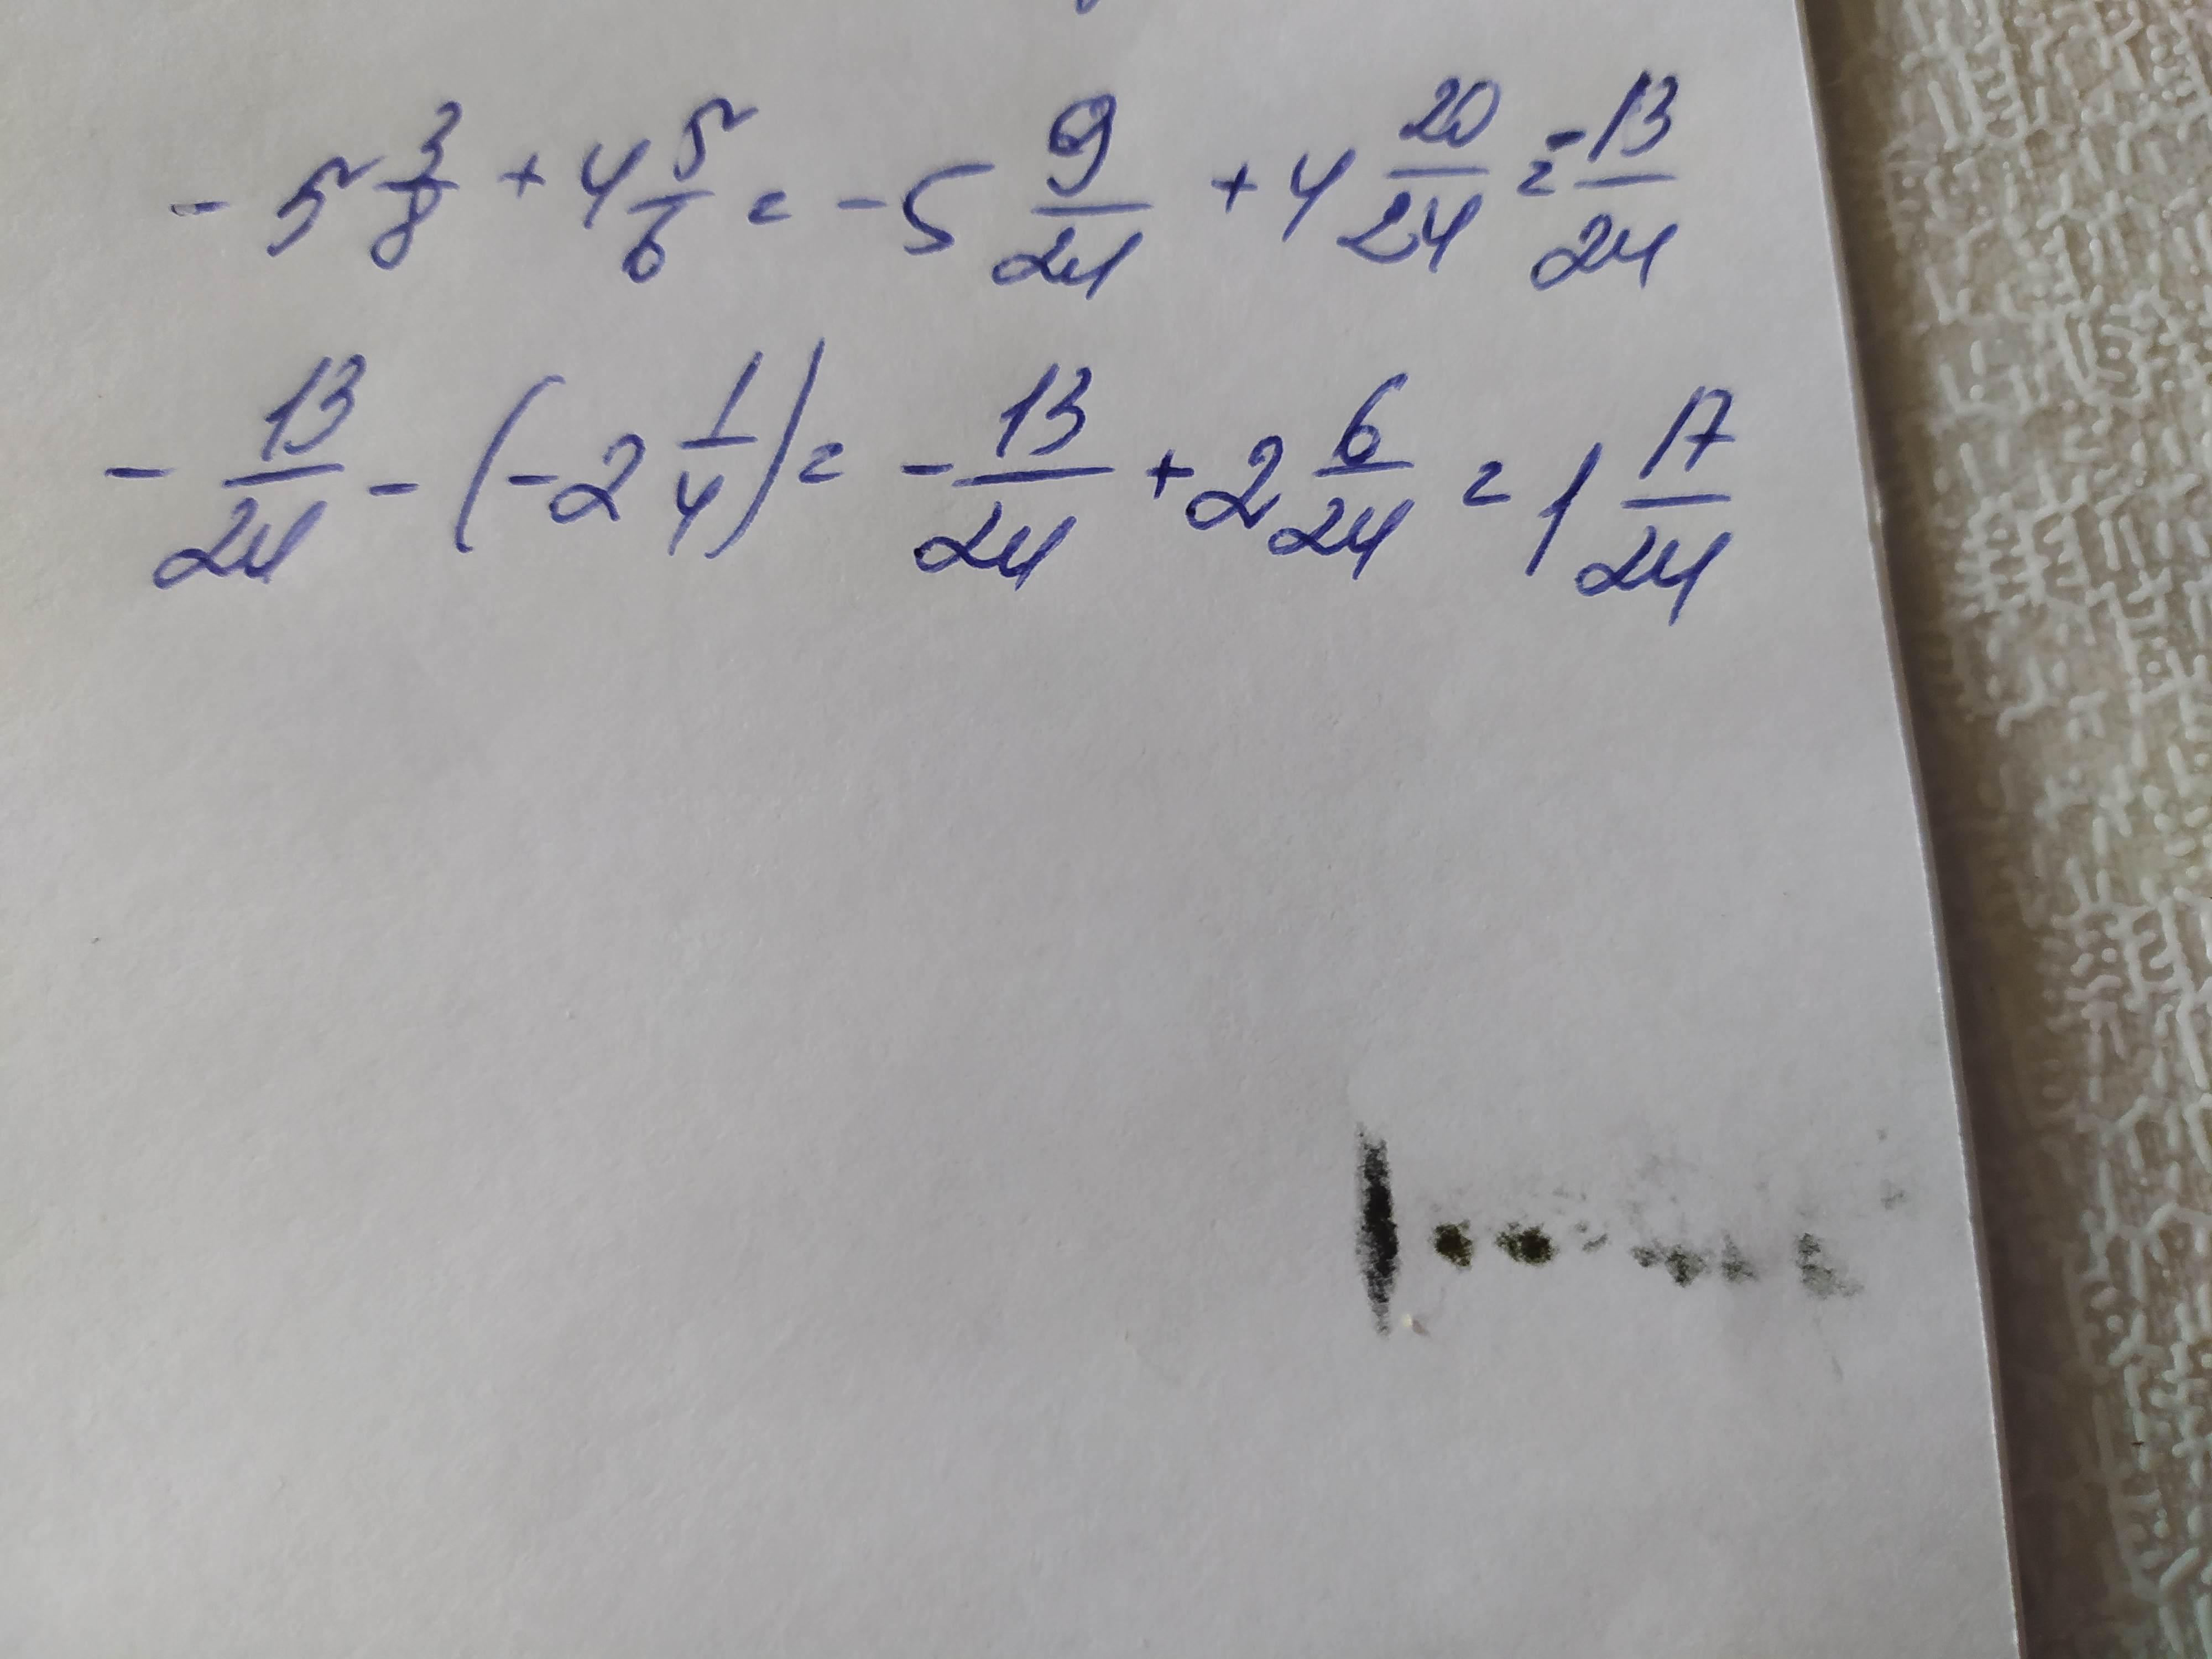 - 5 3/8 + 4 5/6 = - 5 9/24 + 4 20/24 = - 13/24
- 13/24 - (- 2 1/4) = - 13/24 + 2 6/24 = 1 17/24